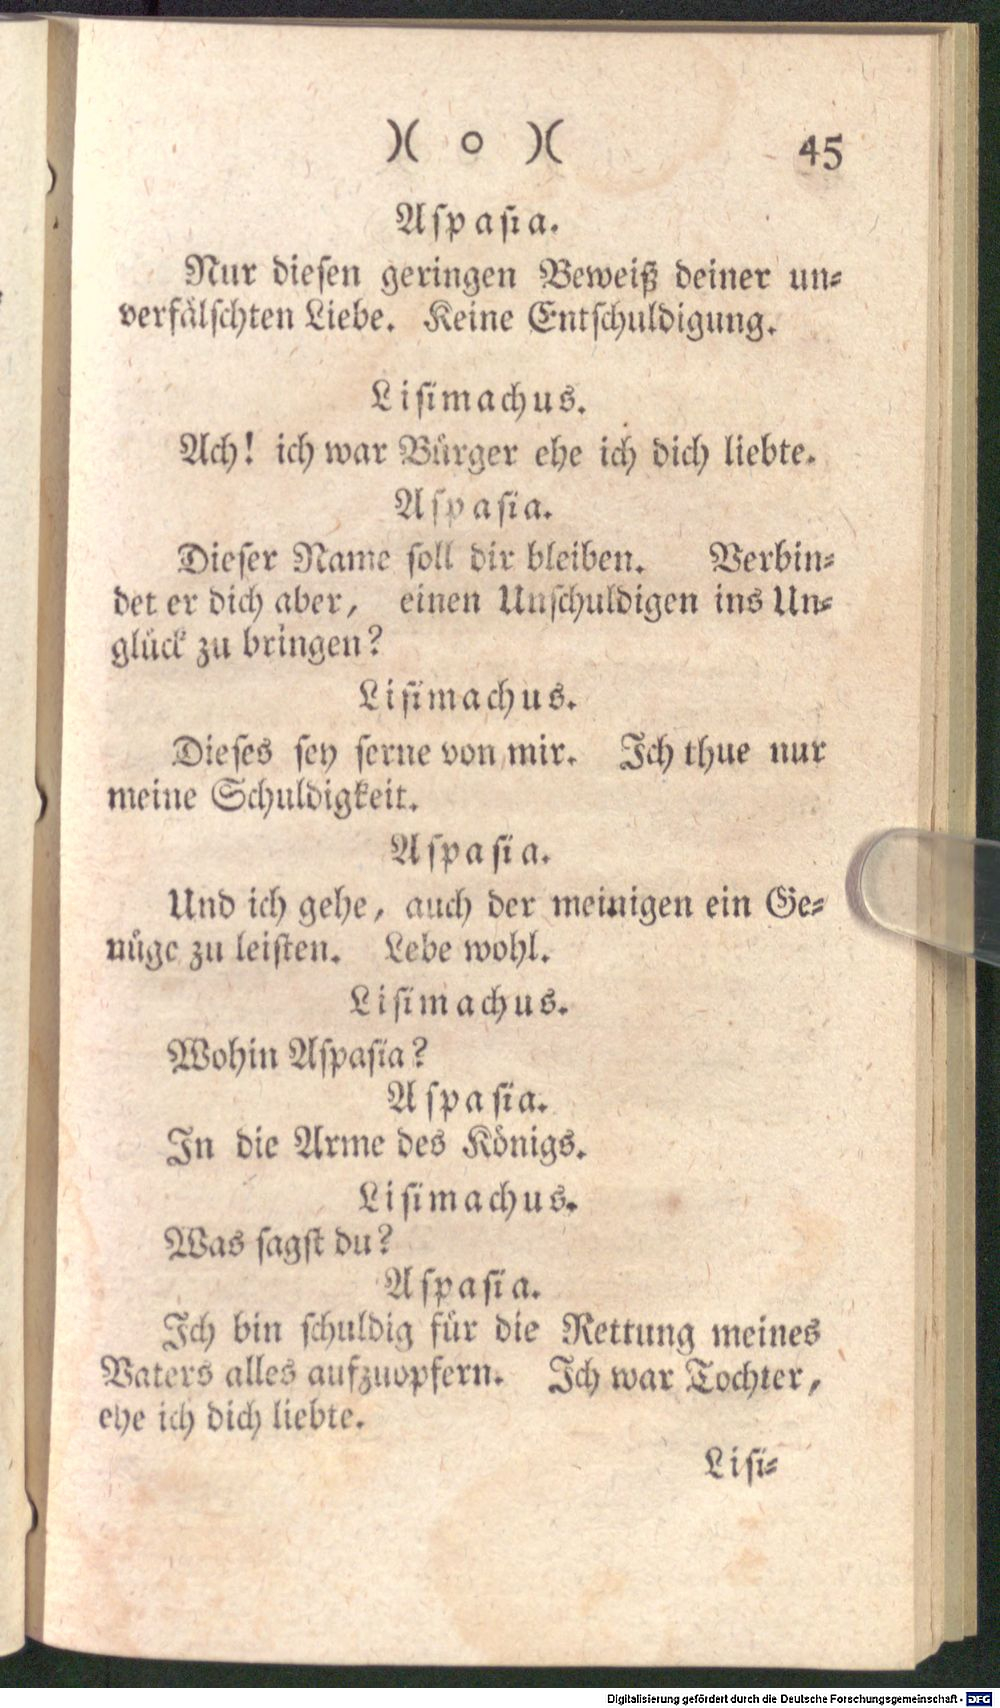 )( o )( 45
Aſpaſia.
Nur dieſen geringen Beweiß deiner un⸗
verfälſchten Liebe. Keine Entſchuldigung.
Liſimachus.
Ach! ich war Bürger ehe ich dich liebte.
Aſpaſia.
Dieſer Name ſoll dir bleiben. Verbin⸗
det er dich aber, einen Unſchuldigen ins Un⸗
glück zu bringen?
Liſimachus.
Dieſes ſey ferne von mir. Ich thue nur
meine Schuldigkeit.
Aſpaſia.
Und ich gehe, auch der meinigen ein Ge⸗
nüge zu leiſten. Lebe wohl.
Liſimachus.
Wohin Aſpaſia?
Aſpaſia.
In die Arme des Königs.
Liſimachus.
Was ſagſt du?
Aſpaſia.
Ich bin ſchuldig für die Rettung meines
Vaters alles aufzuopfern. Ich war Tochter,
ehe ich dich liebte.
Liſi⸗
Digitalisierung gefördert durch die Deutsche Forschungsgemeinschaft - DFG